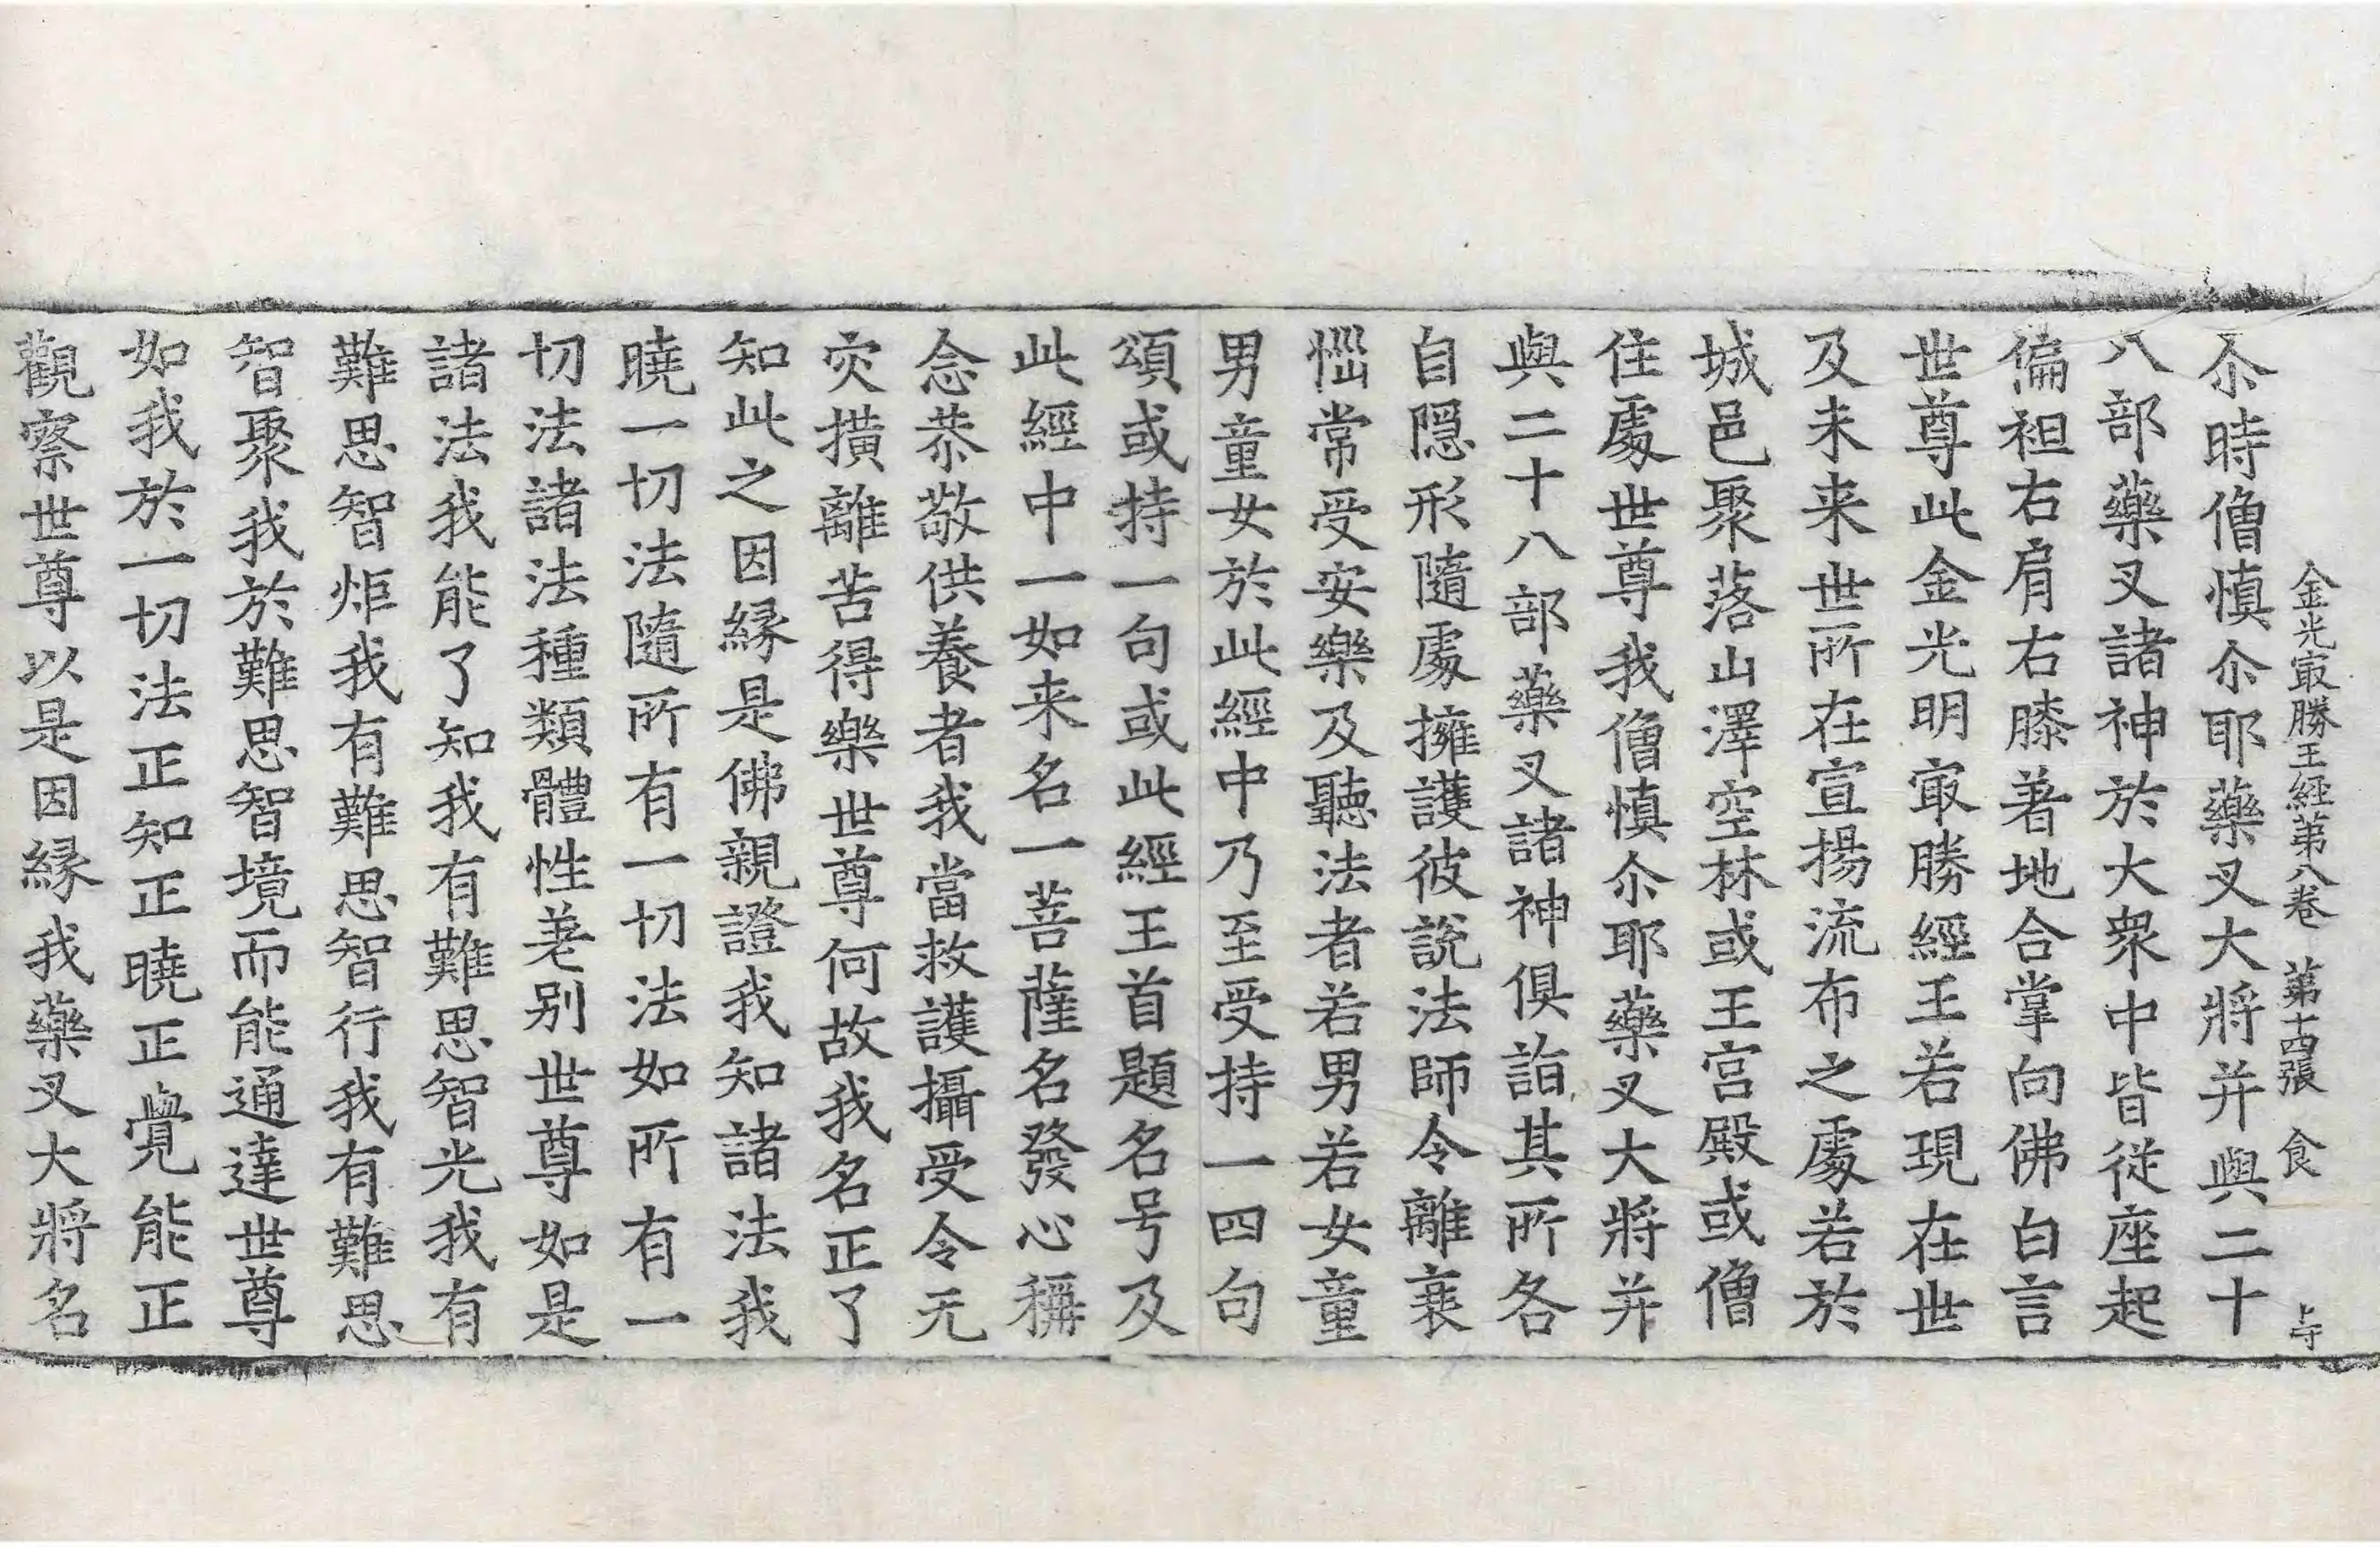 金光㝡勝王經第八卷 第十四張 食
尒時僧慎尒耶藥叉大將并與二十
八部藥叉諸神於大衆中皆從座起
偏袒右肩右膝著地合掌向佛白言
世尊此金光明㝡勝經王若現在世
及未来世所在宣揚流布之處若於
城邑聚落山澤空林或王宫殿或僧
住處世尊我僧慎尒耶藥叉大將并
與二十八部藥叉諸神俱詣其所各
自隱形隨處擁護彼說法師令離衰
惱常受安樂及聽法者若男若女童
男童女於此經中乃至受持一四句
頌或持一句或此經王首題名号及
此經中一如来名一菩薩名發心稱
念恭敬供養者我當救護攝受令无
灾撗離苦得樂世尊何故我名正了
知此之因緣是佛親證我知諸法我
曉一切法隨所有一切法如所有一
切法諸法種類體性差别世尊如是
諸法我能了知我有難思智光我有
難思智炬我有難思智行我有難思
智聚我於難思智境而能通達世尊
如我於一切法正知正曉正覺能正
觀察世尊以是因緣我藥叉大將名